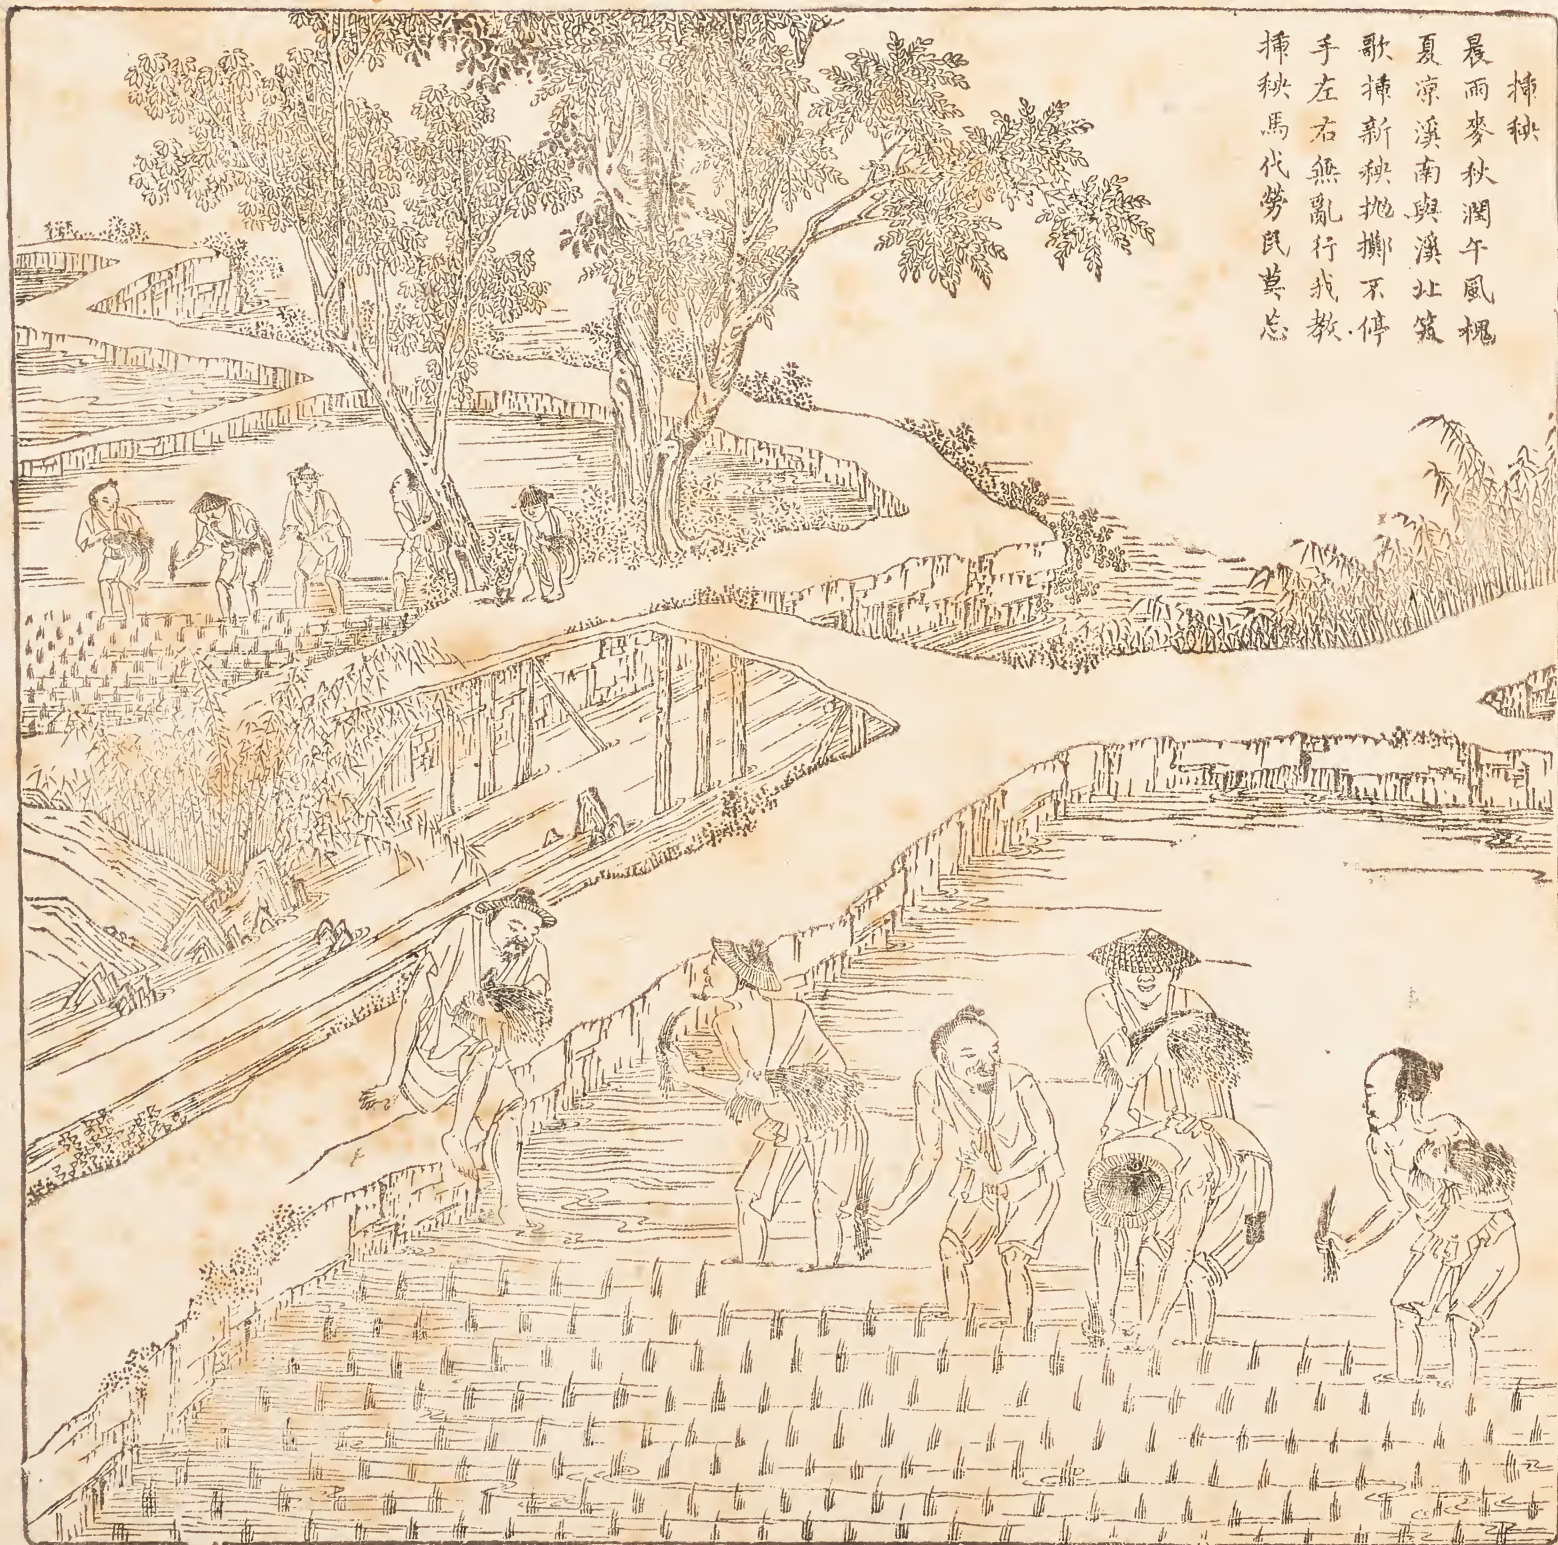 插秧
晨雨麥秋潤午風槐
夏涼溪南與溪北笑
歌插新秧拋擲不停
手左右無亂行我教
插秧馬代勞民莫忘